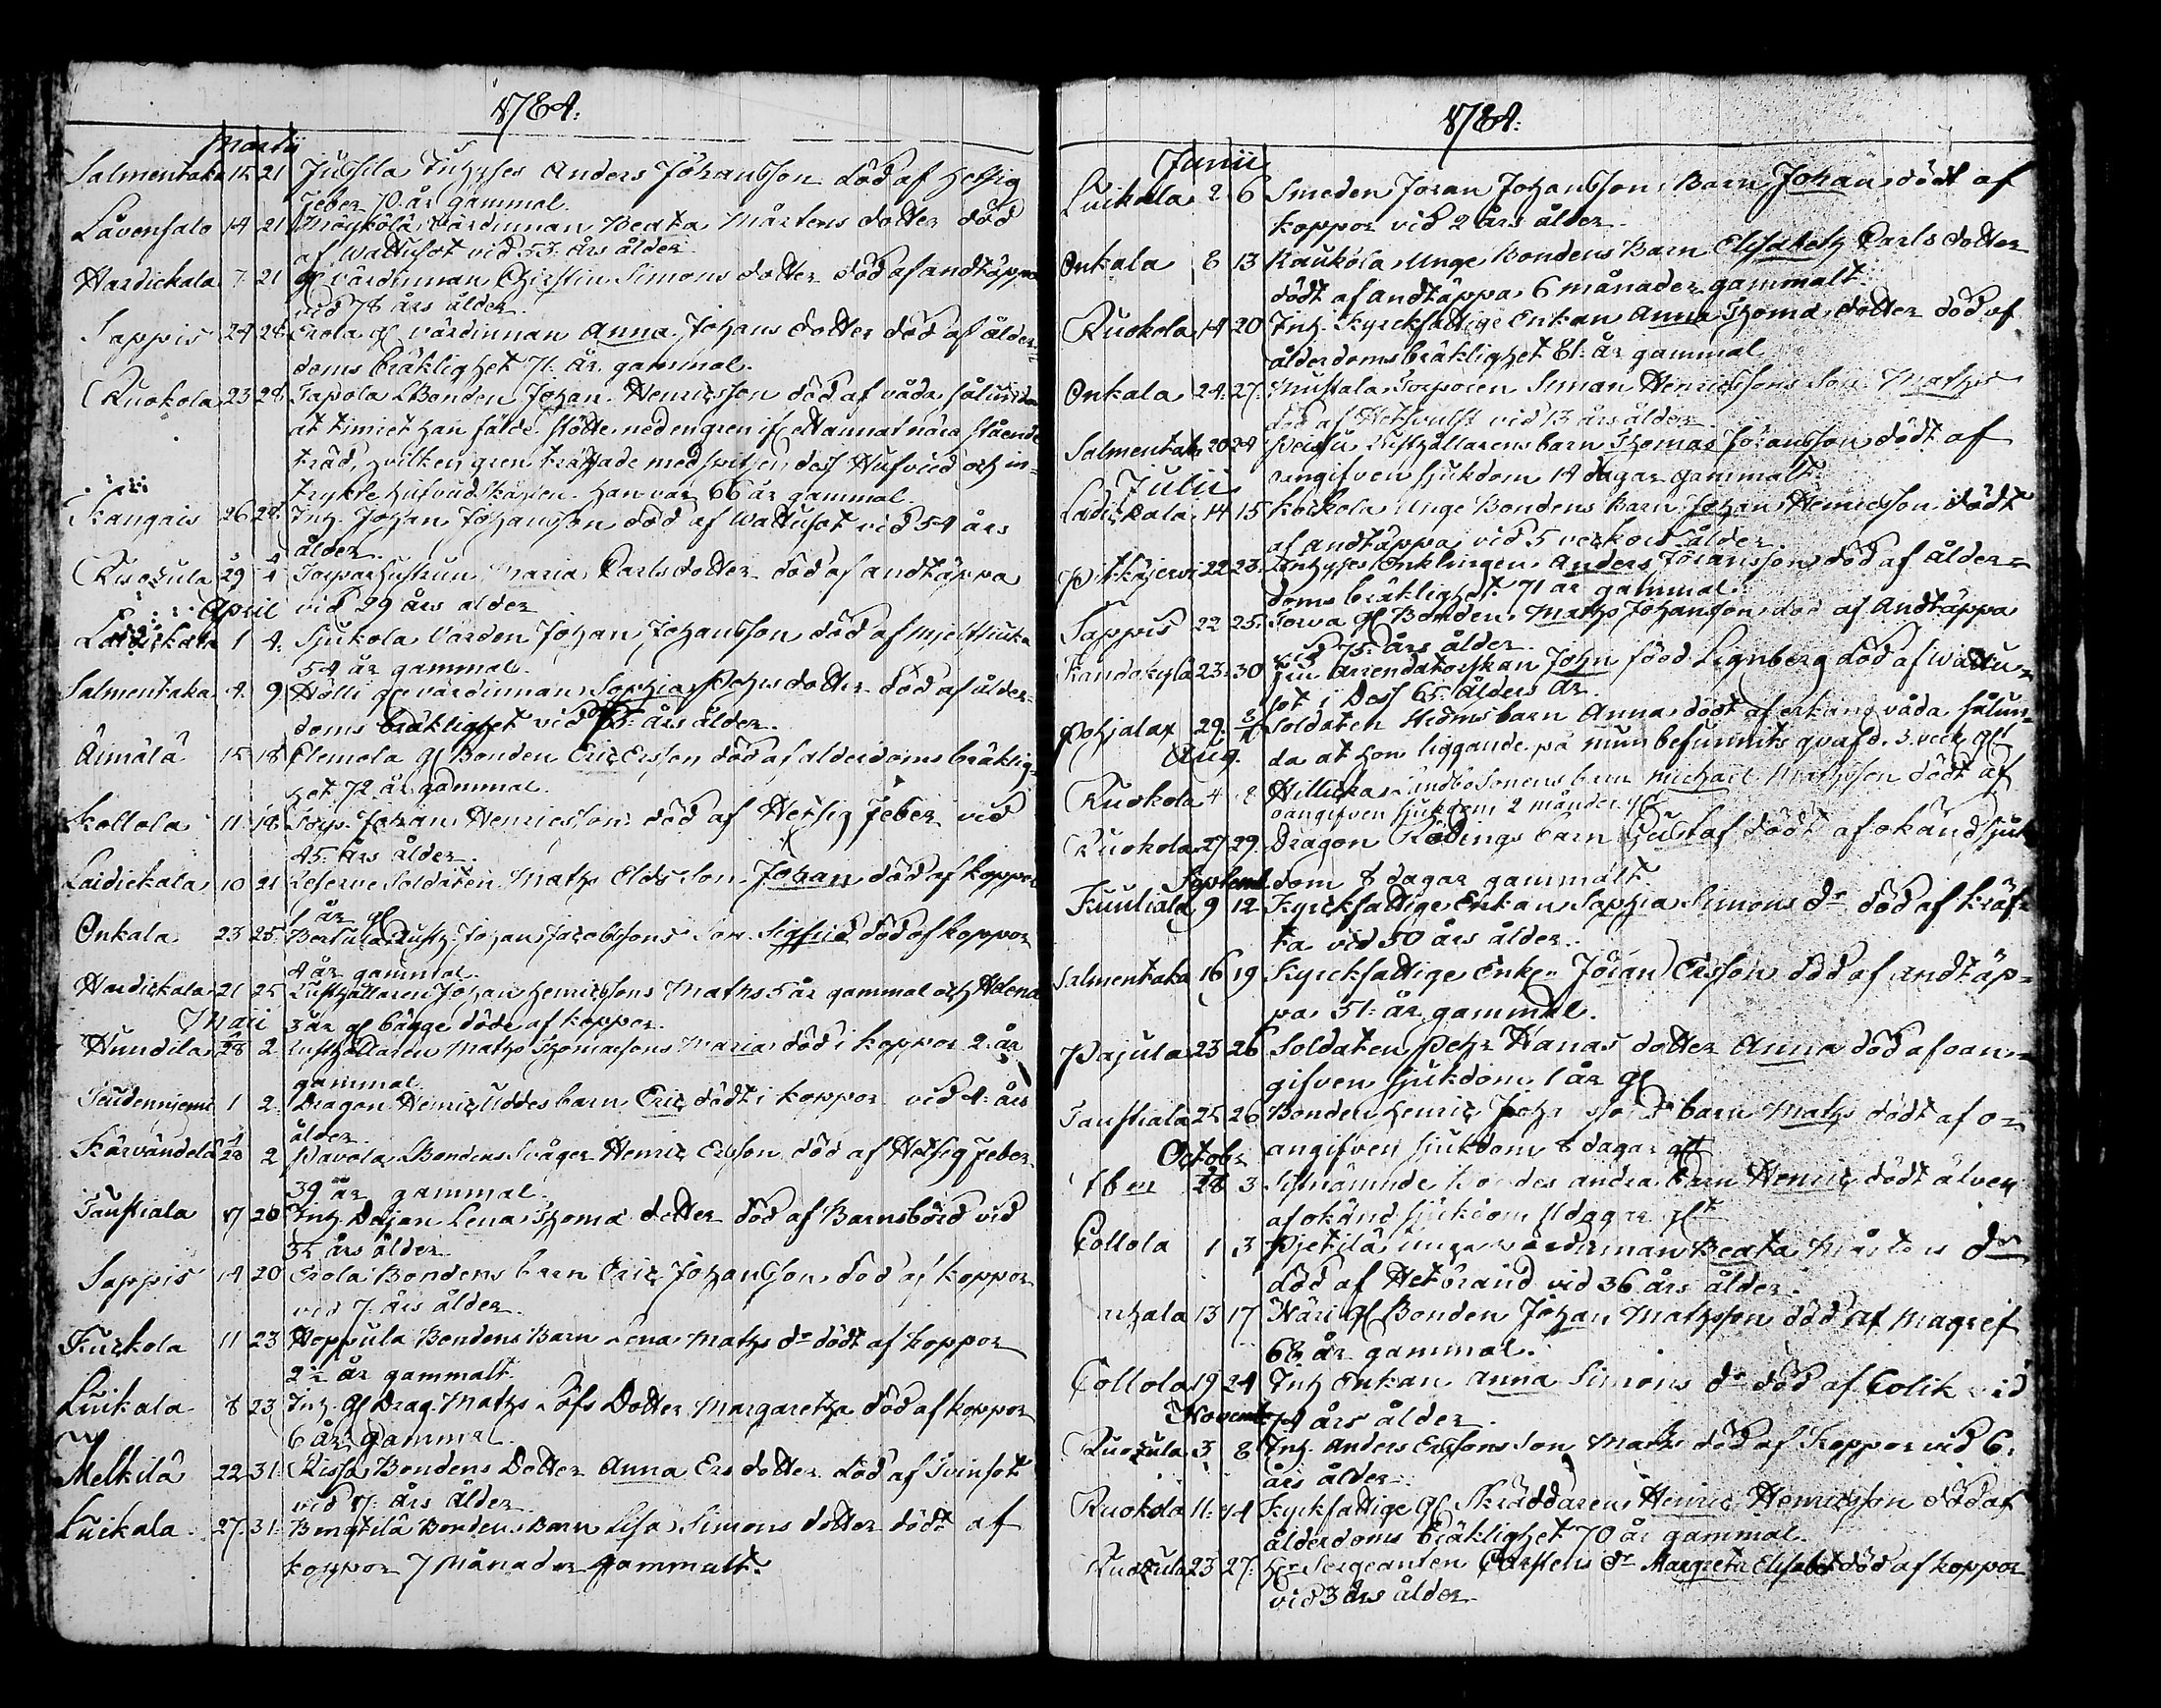 1784.
Martii
Salmentaka 15 21 Jussila Inhyses Anders Johansson död af hetsig
feber 70 år gammal.
Låvensalo 14 21 Värdinnan Beata Mårtens dotter död
af Wattusot vid 55 års ålder.
Hardickala 7 21 gl värdinnan Christin Simons dotter död af andtäppa
vid 78 års ålder.
Sappis 24 28 Erola gl värdinnan Anna Johans dotter död af ålder-
doms bräklighet 71. år gammal.
Ruokola 23 28 Tapola Bonden Johan Henricsson död af våda sålunda
at timret han fälde stötte ned en gren if ett annat nära stående
träd, hvilken gren träffade med spitsen dess Hufvud och in-
tryckte hufvudskålen. Han var 66 år gammal.
Kangais 26 28 Inh. Johan Johansson död af Wattusot vid 54 års
ålder.
29 4 Maria Carls dotter död af andtäppa
vid 29 års ålder
April
Laidickala 1 4. Sjukola Värden Johan Johansson död af mjeltsjuka
54 år gammal.
Salmentaka 4. 9 Hölli gl värdinnan Sophia Pehrs dotter död af ålder-
doms bräklighet vid 75. års ålder.
Äimälä 15 18 Elemola gl Bonden Eric Ersson död af ålderdoms bräklig-
het 72 år gammal.
Kollola 11 18 Torp. Johan Henricsson död af Hetsig feber vid
45. års ålder.
Laidickala 10 21 Reserve Soldaten Maths Elds Son Johan död af koppor
1 år gl
Onkala 23 25 Bertula Rusth. Johan Jacobssons Son Sigfrid död af koppor
4 år gammal.
Hardickala 21 25 Rusthållaren Johan Henricssons Maths 5 år gammal och Helena
3 år gl bägge döde af koppor.
Maii
Hundila 28 2 Rusthållaren Maths Thomassons Maria död i koppor 2 år
gammal.
1 2. Dragon Henric Uddes barn Eric dödt i koppor vid 4. års
ålder.
Kärvändelä 28 2 Pavola Bondens Svåger Henric Ersson död af Hetsig feber
39 år gammal.
Taustiala 17 20 Inh. Lena Thoma dotter död af Barnsbörd vid
35 års ålder.
Sappis 14 20 Erola Bondens barn Eric Johansson död af koppor
vid 7. års ålder.
Kurkola 11 23 Hoppula Bondens Barn Lena Maths dr dödt af koppor
2½ år gammalt.
Luikala 8 23 Inh. gl Drag. Maths Löfs Dotter Margaretha död af koppor
6 år gammal.
Mälkilä 22 31. Rissa Bondens Dotter Anna Ers dotter död af Tvinsot
vid 17. års ålder
Luikala 27 31. Bondens Barn Lisa Simons dotter dödt af
koppor 7 månader gammalt.
1784.
Junii
Luikala 2 6 Smeden Joran Johanssons Barn Johan dödt af
koppor vid 2 års ålder.
Onkala 8 13 Raukola Unge Bondens Barn Elisabeth Carls dotter
dödt af andtäppa 6 månader gammalt.
Ruokola 14 20 Inh. Kyrckfattige Enkan Anna Thoma dotter död af
ålderdoms bräklighet 81. år gammal
Onkala 24. 27. Mustala Torparen Simon Henricssons Son Maths
död af vid 13 års ålder.
Salmentaka 20 24 Rusthållarens barn Thomas Johansson dödt af
oangifven sjukdom 14 dagar gammalt.
Julii
Laidickala 14 15 Kockola Unge Bondens Barn Johan Henricsson dödt
af andtäppa vid 5 veckors ålder.
Pitkäjervi 22 23. Inhyses Enklingen Anders Johansson död af ålder-
doms bräklighet 71 år gammal.
Sappis 22 25. Torva gl Bonden Maths Johansson död af Andtäppa
vid 75. års ålder.
23 30 Fru Arrendatorskan John född Lignberg död af Wattu-
sot i dess 65 ålders år.
Pohjalax 29. Soldaten Hedms barn Anna dödt af våda sålun-
da at hon liggande på mun befunnits qvafd. 3. veck. gl
Aug.
Ruokola 4 8 Hillicka Sonens barn Michael Mathsson dödt af
oangifven sjukdom 2 månader gl
Ruokola 27 29. Dragon Rödings barn Gustaf dödt af okänd sjuk-
dom 8 dagar gammalt.
Septemb.
Kuuliala 9 12 Kyrckfattige Enkan Sophia Simons dr död af kräf-
ta vid 50 års ålder.
Salmentaka 16 19 Kyrckfattige Enkl. Jöran Ersson död af andtäp-
pa 51. år gammal.
Pajula 23 26 Soldaten Pehr Hanas dotter Anna död af oan-
gifven sjukdom 1 år gl
Taustiala 25 26 Bonden Henric barn Maths dödt af o-
angifven sjukdom 8 dagar glt
Octobr.
28 3 andra barn Henric dödt älven
af okänd sjukdom 11 dagar glt
Collola 1 3 Pjetilä unga värdinnan Beata Mårtens dr
död af Hetbränd vid 36 års ålder.
13 17 Häri gl Bonden Johan Mathsson död af Magref
68 år gammal.
Collola 19 24 Inh Enkan Anna Simons dr död af Colik vid
74 års ålder.
Novembr.
3 8 Inh. Anders Erssons Son Maths död af Koppor vid 6.
års ålder.
Ruokola 11. 14 Kyrkfattige gl Skräddaren Henric Henricsson död af
ålderdoms bräklighet 70 år gammal.
23 27. Hr Sergeanten Carstens dr Margreta Elisabet död af koppor
vid 3 års ålder.